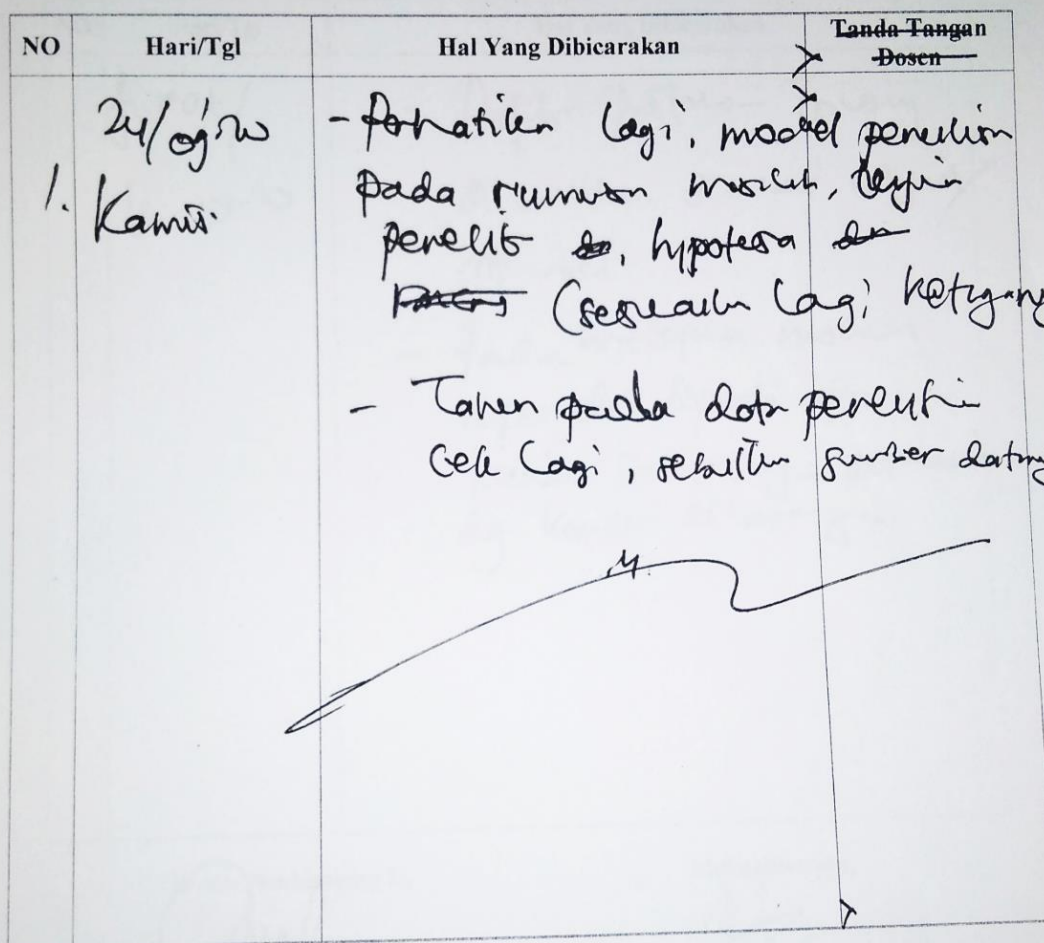 NO Hari/Tgl Hal Yang Dibicarakan Tanda Tangan Dosen
1. 24/09.20 Kamis
- Perhatikan lagi, model penelitian
pada rumusan masalah, tujuan
penelit, hypotesa
(sesuaikan lagi ketiganya
- Tahun pada data penelitian
cek lagi, sebutkan sumber datanya